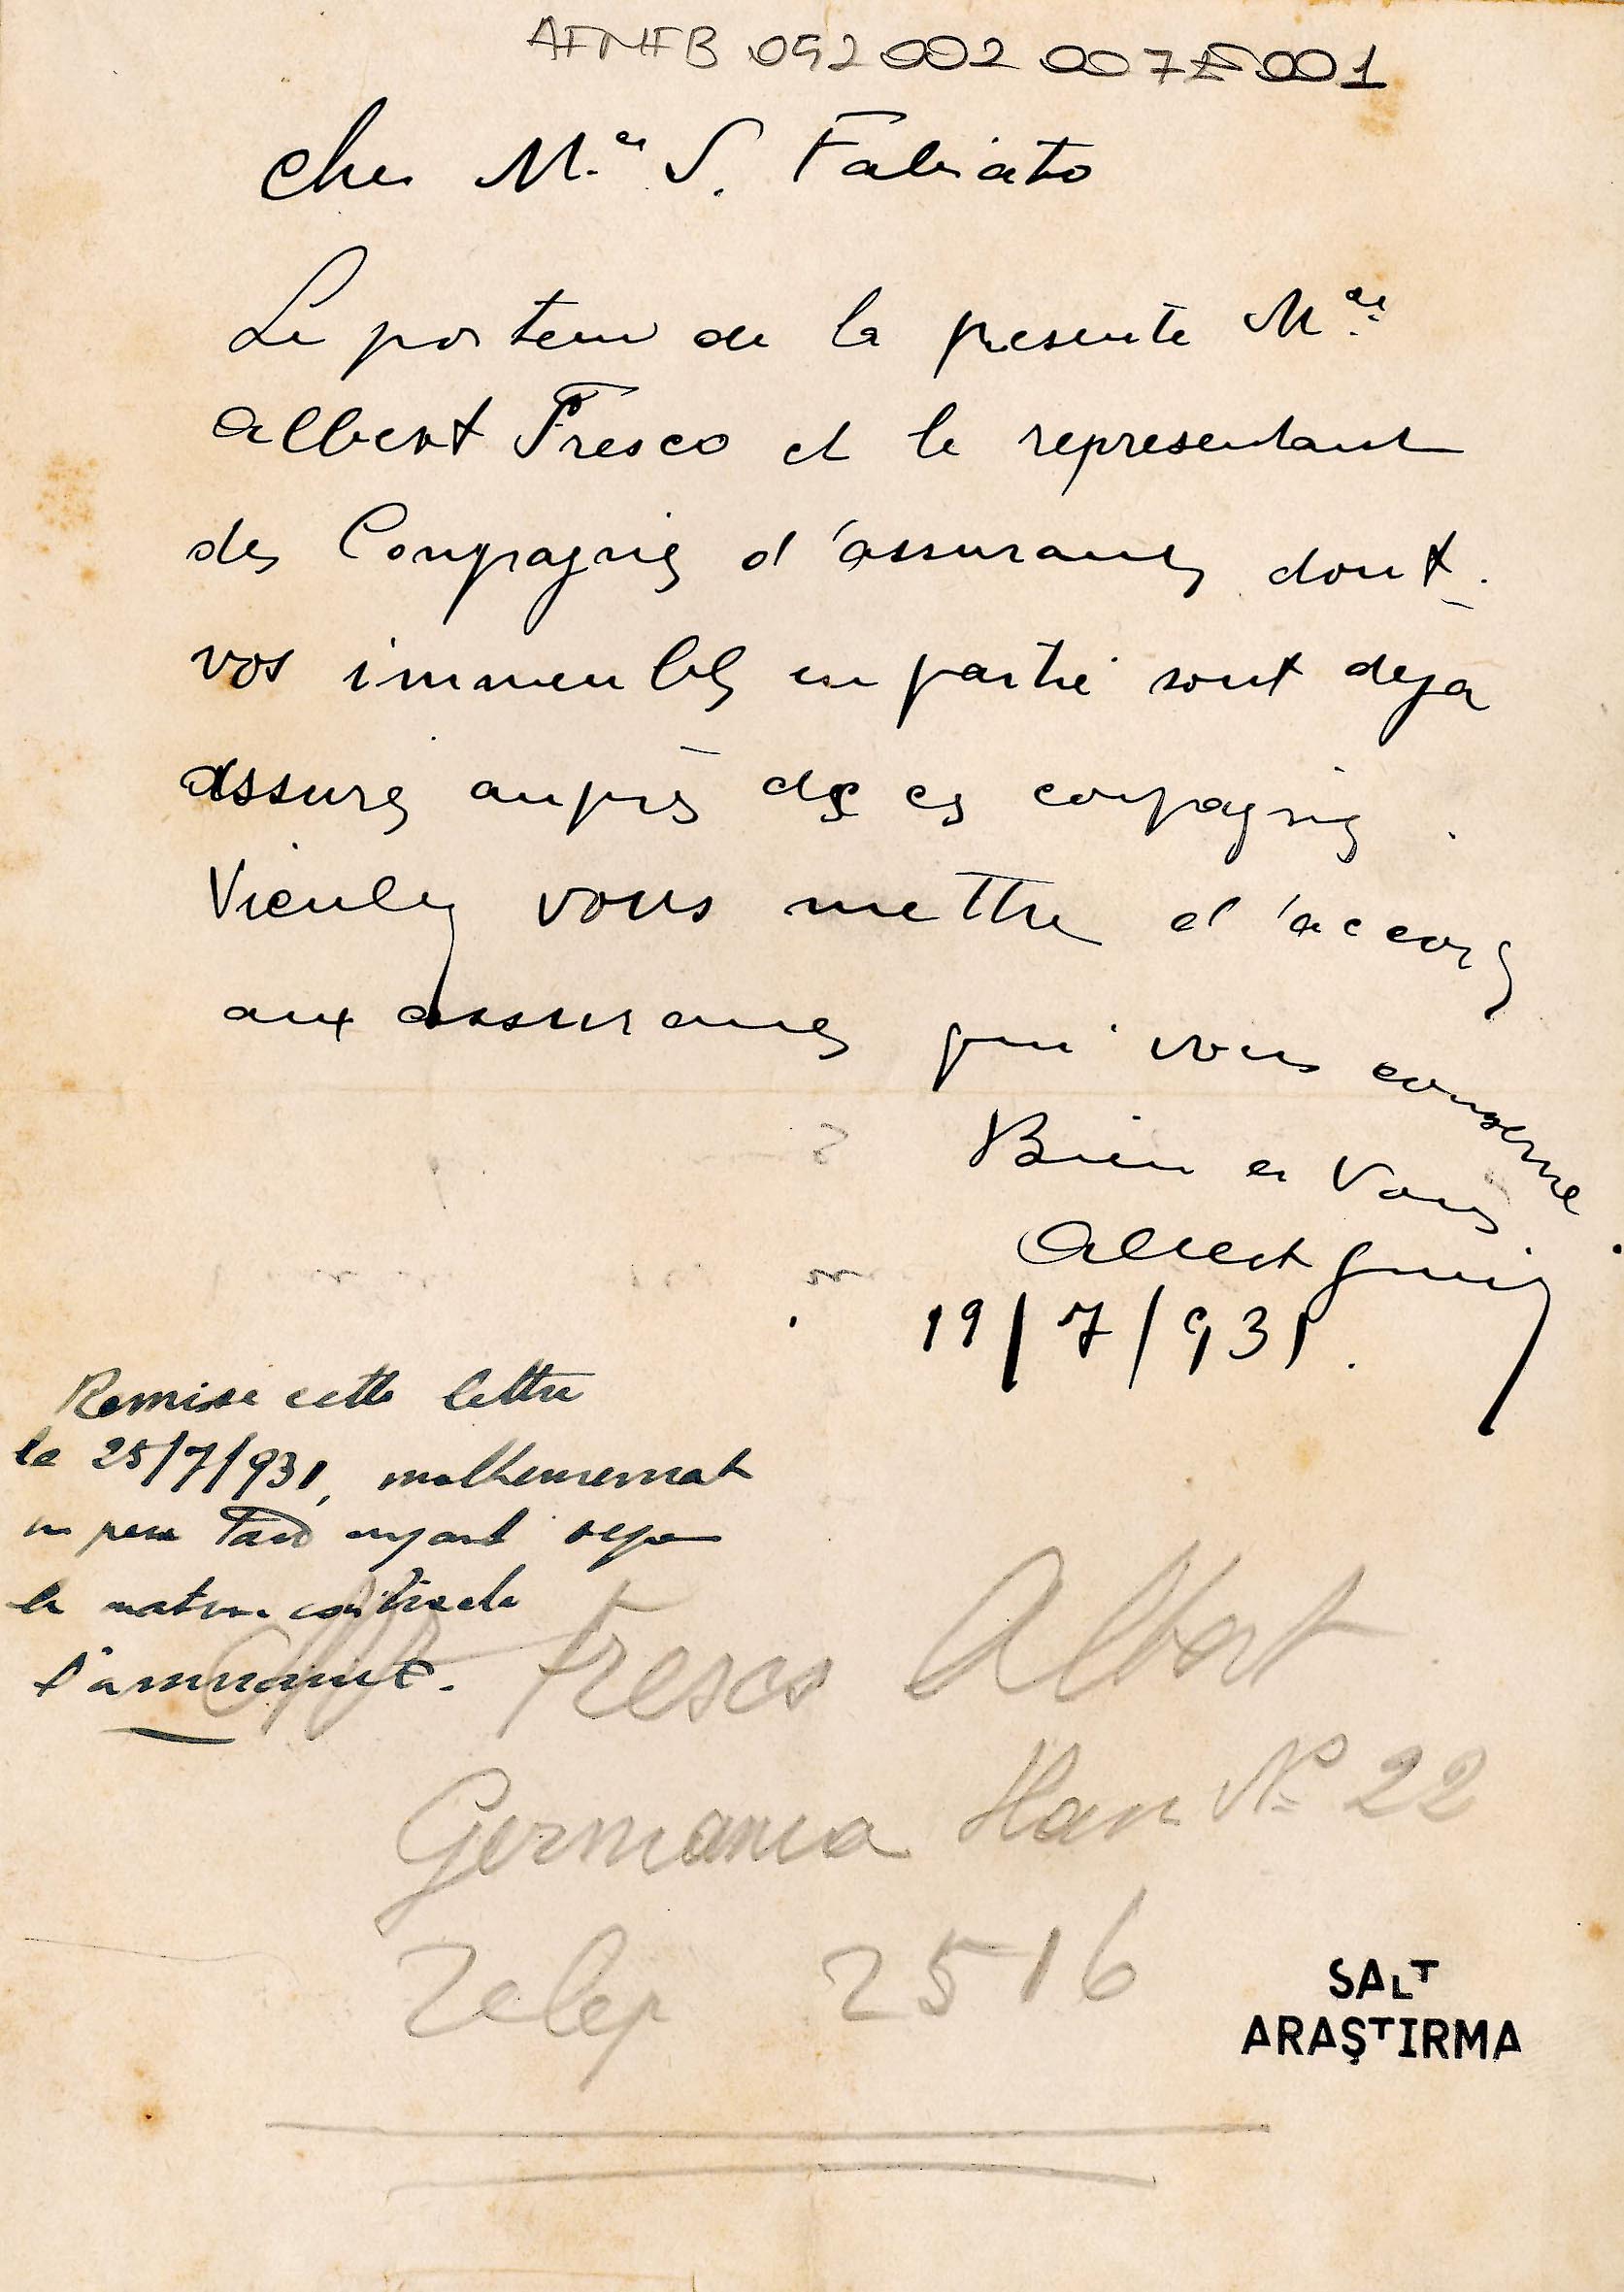 AFMFB 092 002 007 F 001
Cher M.er S. Fabiato
Le porteur de la presente M.er
Albert Fresco et le representant
des Compagnies d'assurances dont
vos immeubles en partie sont deja
assurés auprès de ces compagnies
Vieuley vous mettre d'accord
aux assurances qui vous conserne
Bien a Vous
Albert
19/7/931.
Remise cette lettre
le 25/7/931, malheureusement
un peu Tard ayant deja
Fresco Albert
Germania Han No 22
Telep 2516
SALT
ARAŞTIRMA